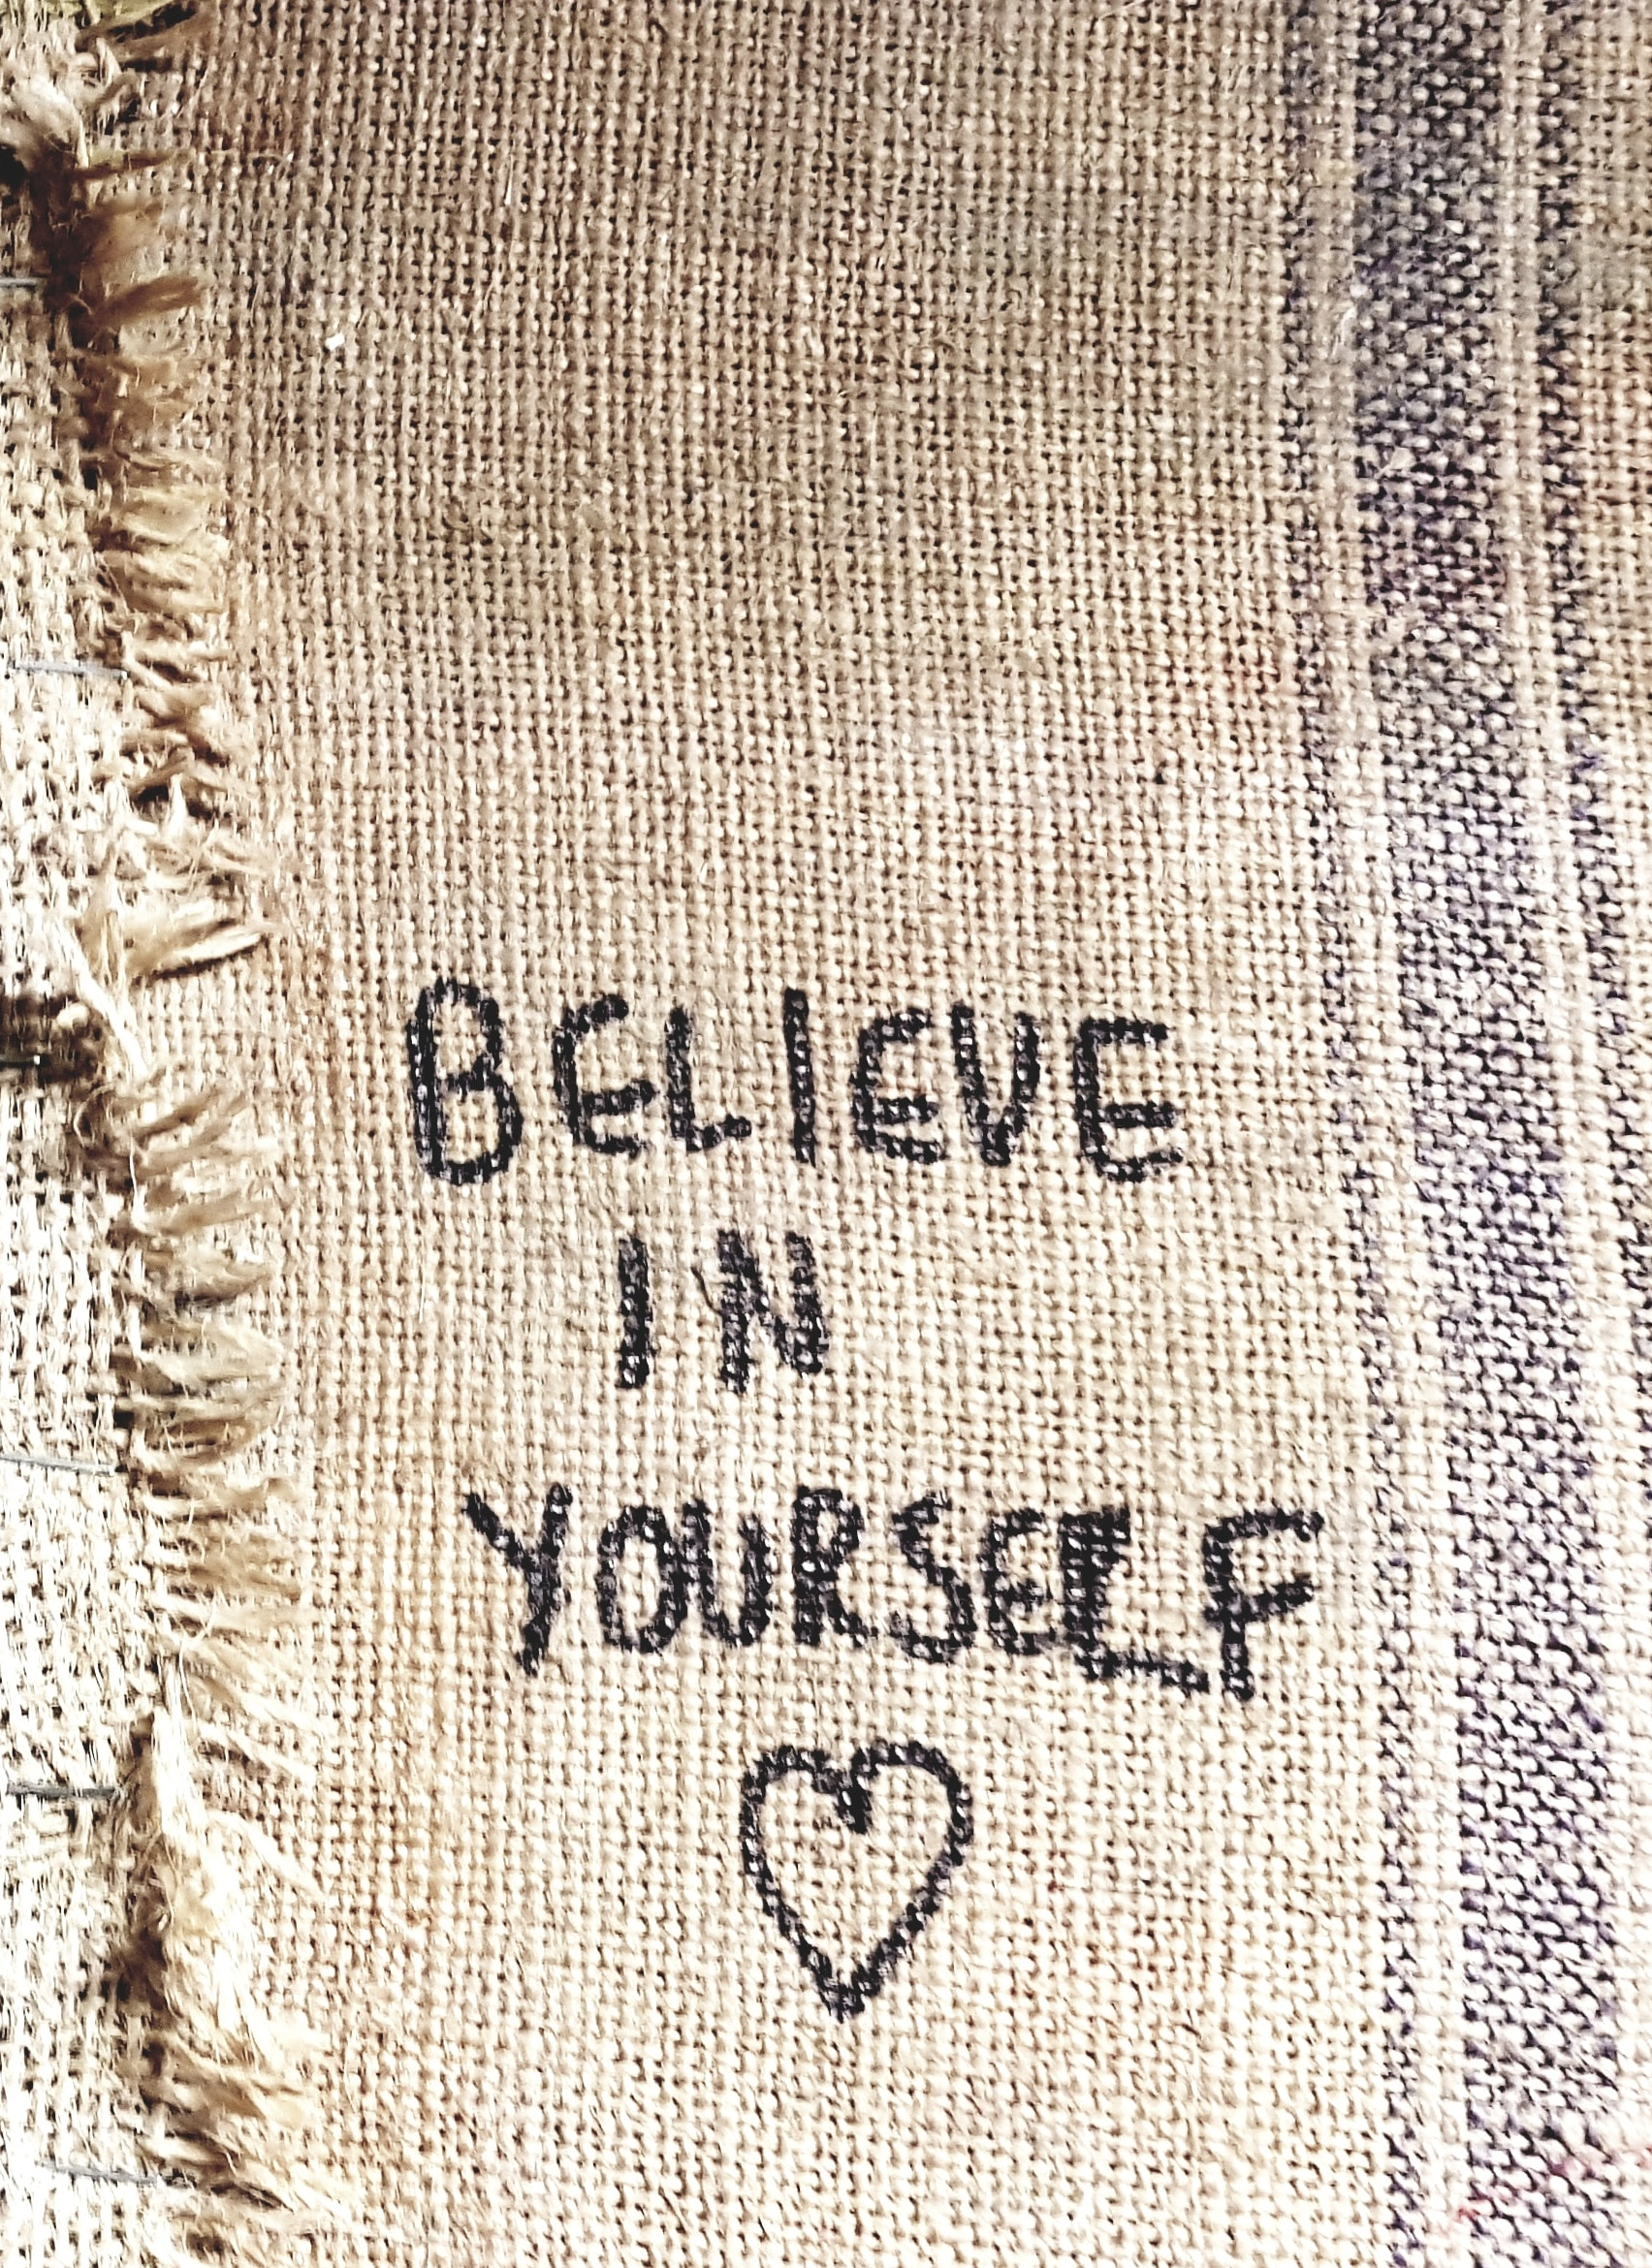 BELIEVE
IN
YOURSELF